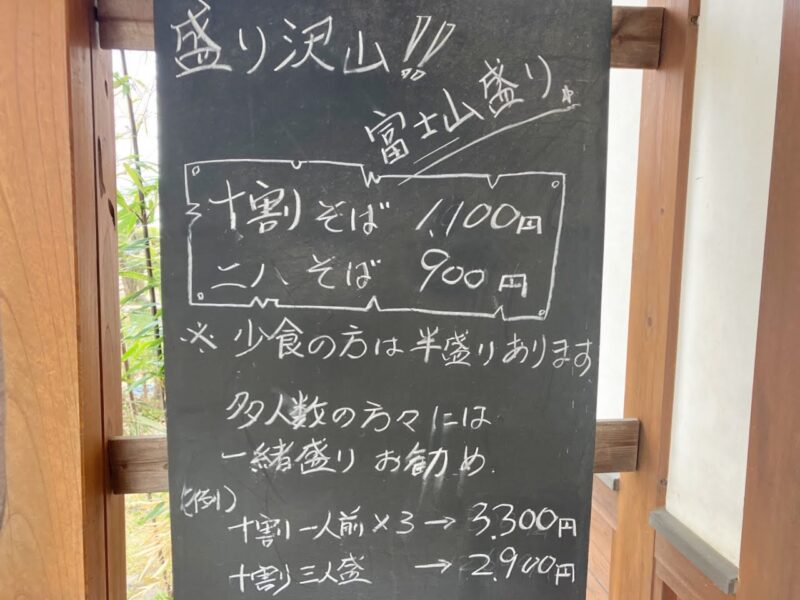 盛り沢山!!
富士山盛り
十割そば 1,100円
二八そば 900円
※少食の方は半盛りあります
多人数の方々には
一緒盛りお勧め.
(例)
十割一人前×3→3,300円
十割三人盛 →2,900円